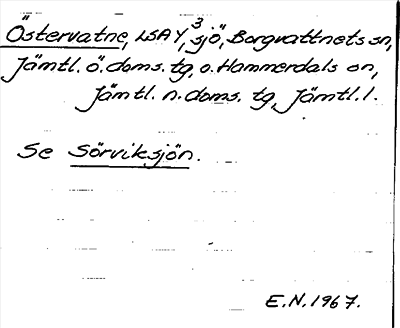 Östervatne, LSA Y, 3 sjö, Borgvattnets sn,
Jämtl. ö. doms. tg, o. Hammerdals sn,
Jämtl. n. doms. tg, Jämtl. l.
Se Sörviksjön.
E.N. 1967.